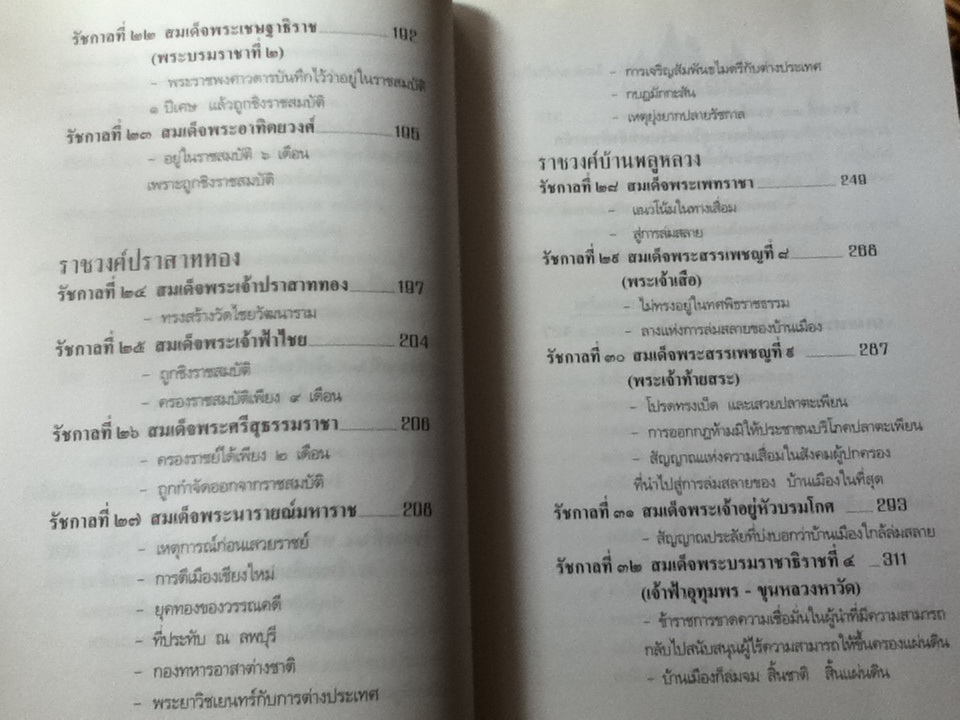 รัชกาลที่ ๒๒ สมเด็จพระเชษฐาธิราช 192
(พระบรมราชาที่ ๒)
- พระราชพงศาวดารบันทึกไว้ว่าอยู่ในราชสมบัติ
๑ ปีเศษ แล้วถูกชิงราชสมบัติ
รัชกาลที่ ๒๓ สมเด็จพระอาทิตยวงศ์ 195
- อยู่ในราชสมบัติ ๖ เดือน
เพราะถูกชิงราชสมบัติ
ราชวงศ์ปราสาททอง
รัชกาลที่ ๒๔ สมเด็จพระเจ้าปราสาททอง 197
- ทรงสร้างวัดไชยวัฒนาราม
รัชกาลที่ ๒๕ สมเด็จพระเจ้าฟ้าไชย 204
- ถูกชิงราชสมบัติ
- ครองราชสมบัติเพียง ๙ เดือน
รัชกาลที่ ๒๖ สมเด็จพระศรีสุธรรมราชา 206
- ครองราชย์ได้เพียง ๒ เดือน
- ถูกกำจัดออกจากราชสมบัติ
รัชกาลที่ ๒๗ สมเด็จพระนารายณ์มหาราช 208
- เหตุการณ์ก่อนเสวยราชย์
- การตีเมืองเชียงใหม่
- ยุคทองของวรรณคดี
- ที่ประทับ ณ ลพบุรี
- กองทหารอาสาต่างชาติ
- พระยาวิชเยนทร์กับการต่างประเทศ
- การเจริญสัมพันธไมตรีกับต่างประเทศ
- กบฏมักกะสัน
- เหตุยุ่งยากปลายรัชกาล
ราชวงศ์บ้านพลูหลวง
รัชกาลที่ ๒๘ สมเด็จพระเพทราชา 249
- แนวโน้มในทางเสื่อม
- สู่การล่มสลาย
รัชกาลที่ ๒๙ สมเด็จพระสรรเพชญที่ ๘ 266
(พระเจ้าเสือ)
- ไม่ทรงอยู่ในทศพิธราชธรรม
- ลางแห่งการล่มสลายของบ้านเมือง
รัชกาลที่ ๓๐ สมเด็จพระสรรเพชญที่ ๙ 287
(พระเจ้าท้ายสระ)
- โปรดทรงเบ็ด และเสวยปลาตะเพียน
- การออกกฎห้ามมิให้ประชาชนบริโภคปลาตะเพียน
- สัญญาณแห่งความเสื่อมในสังคมผู้ปกครอง
ที่นำไปสู่การล่มสลายของ บ้านเมืองในที่สุด
รัชกาลที่ ๓๑ สมเด็จพระเจ้าอยู่หัวบรมโกศ 293
- สัญญาณประลัยที่บ่งบอกว่าบ้านเมืองใกล้ล่มสลาย
รัชกาลที่ ๓๒ สมเด็จพระบรมราชาธิราชที่ ๔ 311
(เจ้าฟ้าอุทุมพร - ขุนหลวงหาวัด)
- ข้าราชการขาดความเชื่อมั่นในผู้นำที่มีความสามารถ
กลับไปสนับสนุนผู้ไร้ความสามารถให้ขึ้นครองแผ่นดิน
- บ้านเมืองก็ล่มจม สิ้นชาติ สิ้นแผ่นดิน